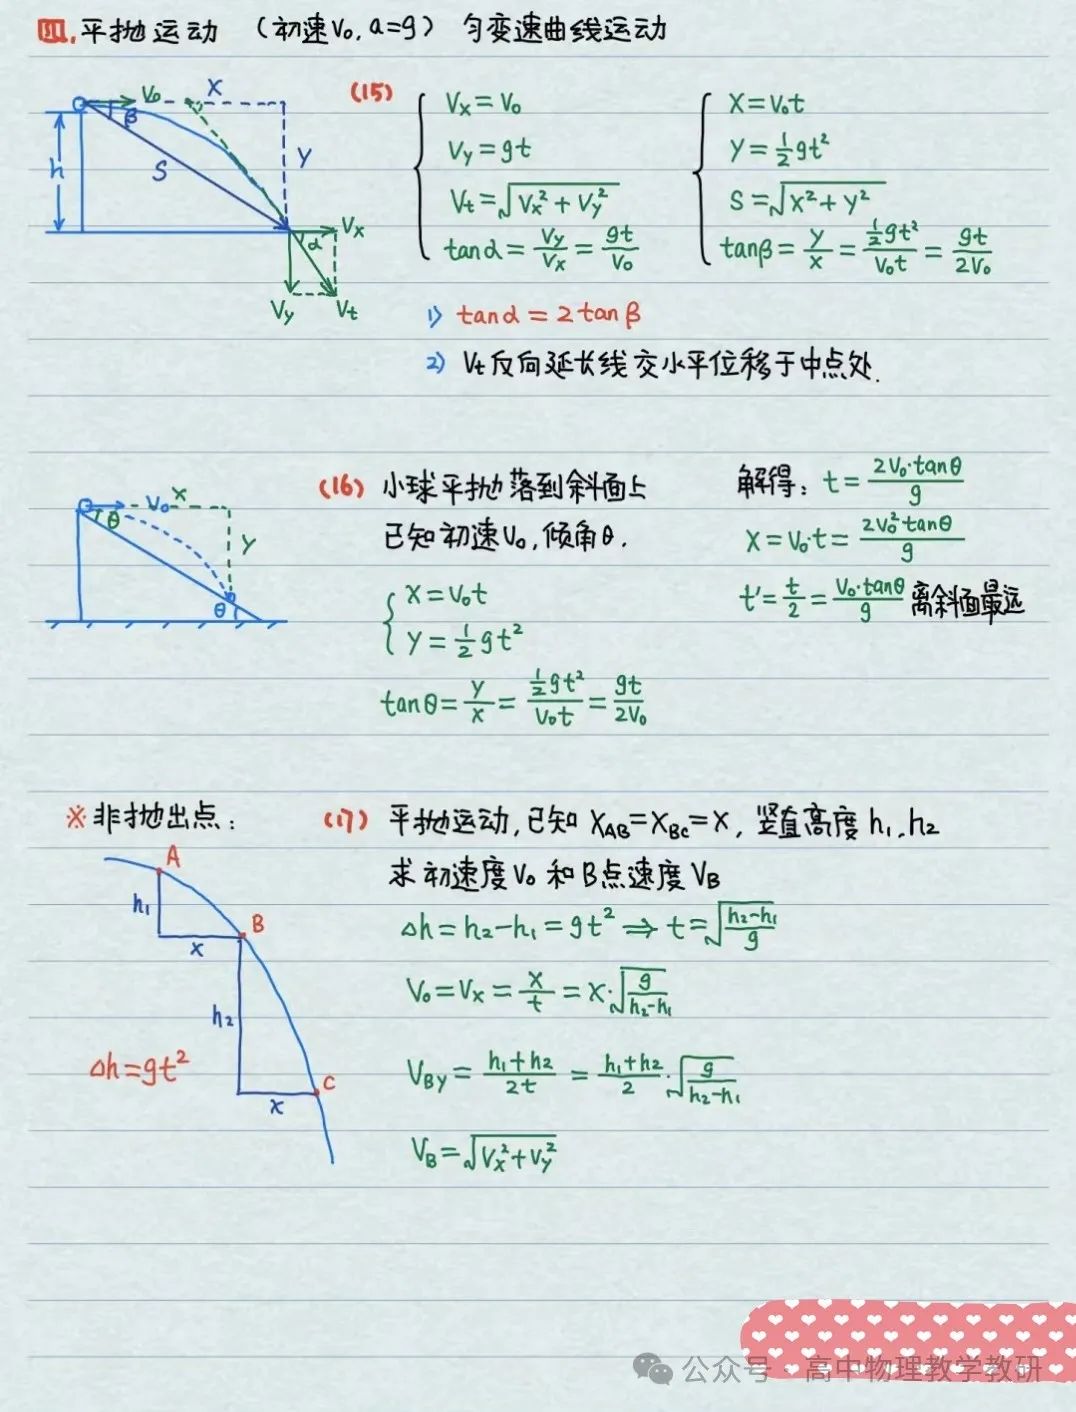 四. 平抛运动 (初速V₀, a=g) 匀变速曲线运动
V₀ X β S Y h Vx α Vy Vt
(15)
Vx = V₀
Vy = gt
Vt = √(Vx² + Vy²)
tanα = Vy/Vx = gt/V₀
X = V₀t
Y = ½gt²
S = √(X² + Y²)
tanβ = Y/X = ½gt²/V₀t = gt/2V₀
1) tanα = 2tanβ
2) Vt反向延长线交水平位移于中点处.
V₀ X θ Y θ
(16) 小球平抛落到斜面上
已知初速V₀, 倾角θ.
X = V₀t
Y = ½gt²
tanθ = Y/X = ½gt²/V₀t = gt/2V₀
解得: t = 2V₀·tanθ/g
X = V₀·t = 2V₀²·tanθ/g
t' = t/2 = V₀·tanθ/g 离斜面最远
※ 非抛出点:
A h₁ X B h₂ X C
Δh = gt²
(17) 平抛运动, 已知 X_AB = X_BC = X, 竖直高度 h₁, h₂
求初速度V₀ 和B点速度V_B
Δh = h₂-h₁ = gt² ⇒ t = √((h₂-h₁)/g)
V₀ = Vx = X/t = X·√(g/(h₂-h₁))
V_BY = (h₁+h₂)/2t = (h₁+h₂)/2·√(g/(h₂-h₁))
V_B = √(Vx² + Vy²)
公众号 · 高中物理教学教研